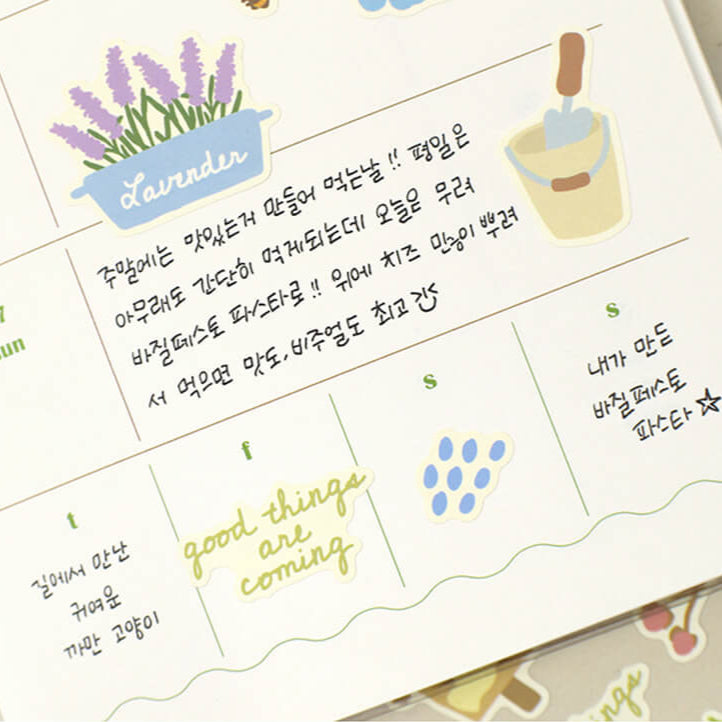 Lavender
주말에는 맛있는거 만들어 먹는날!! 평일은
아무래도 간단히 먹게되는데 오늘은 무려
바질페스토 파스타로!! 위에 치즈 민층이 뿌려
서 먹으면 맛도, 비주얼도 최고긋
7
sun
t
f
s
s
길에서 만난
귀여운
까만 고양이
good things
are
coming
내가 만든
바질페스토
파스타☆